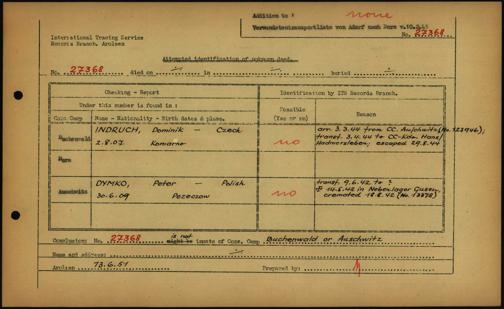 Addition to : none
Vermisstentransportliste von Adorf nach Dora v.10.3.45
No. 27368
International Tracing Service
Records Branch, Arolsen
Attempted identification of unknown dead.
No. 27368 died on -/- in -/- buried -/-
Checking - Report
Identification by ITS Records Branch.
Under this number is found in :
Possible
(Yes or no)
Reason
Conc Camp
Name - Nationality - Birth dates & place.
Buchenwald
INDRUCH, Dominik — Czech
2.8.07. Komarno
no
arr. 3.3.44 from CC. Auschwitz (No. 123946);
transf. 3.4.44 to CC-Kdo. Hans/
Hadmersleben; escaped 29.8.44
Dora
Auschwitz
DYMKO, Peter — Polish
30.6.09 Pezeczow
no
transf. 9.6.42 to ?
✝ 14.8.42 in Nebenlager Gusen,
cremated 18.8.42 (No. 13878)
Conclusion: No. 27368 is not might be inmate of Conc. Camp Buchenwald or Auschwitz
Name and address: -/-
Arolsen 13.6.51 Prepared by: